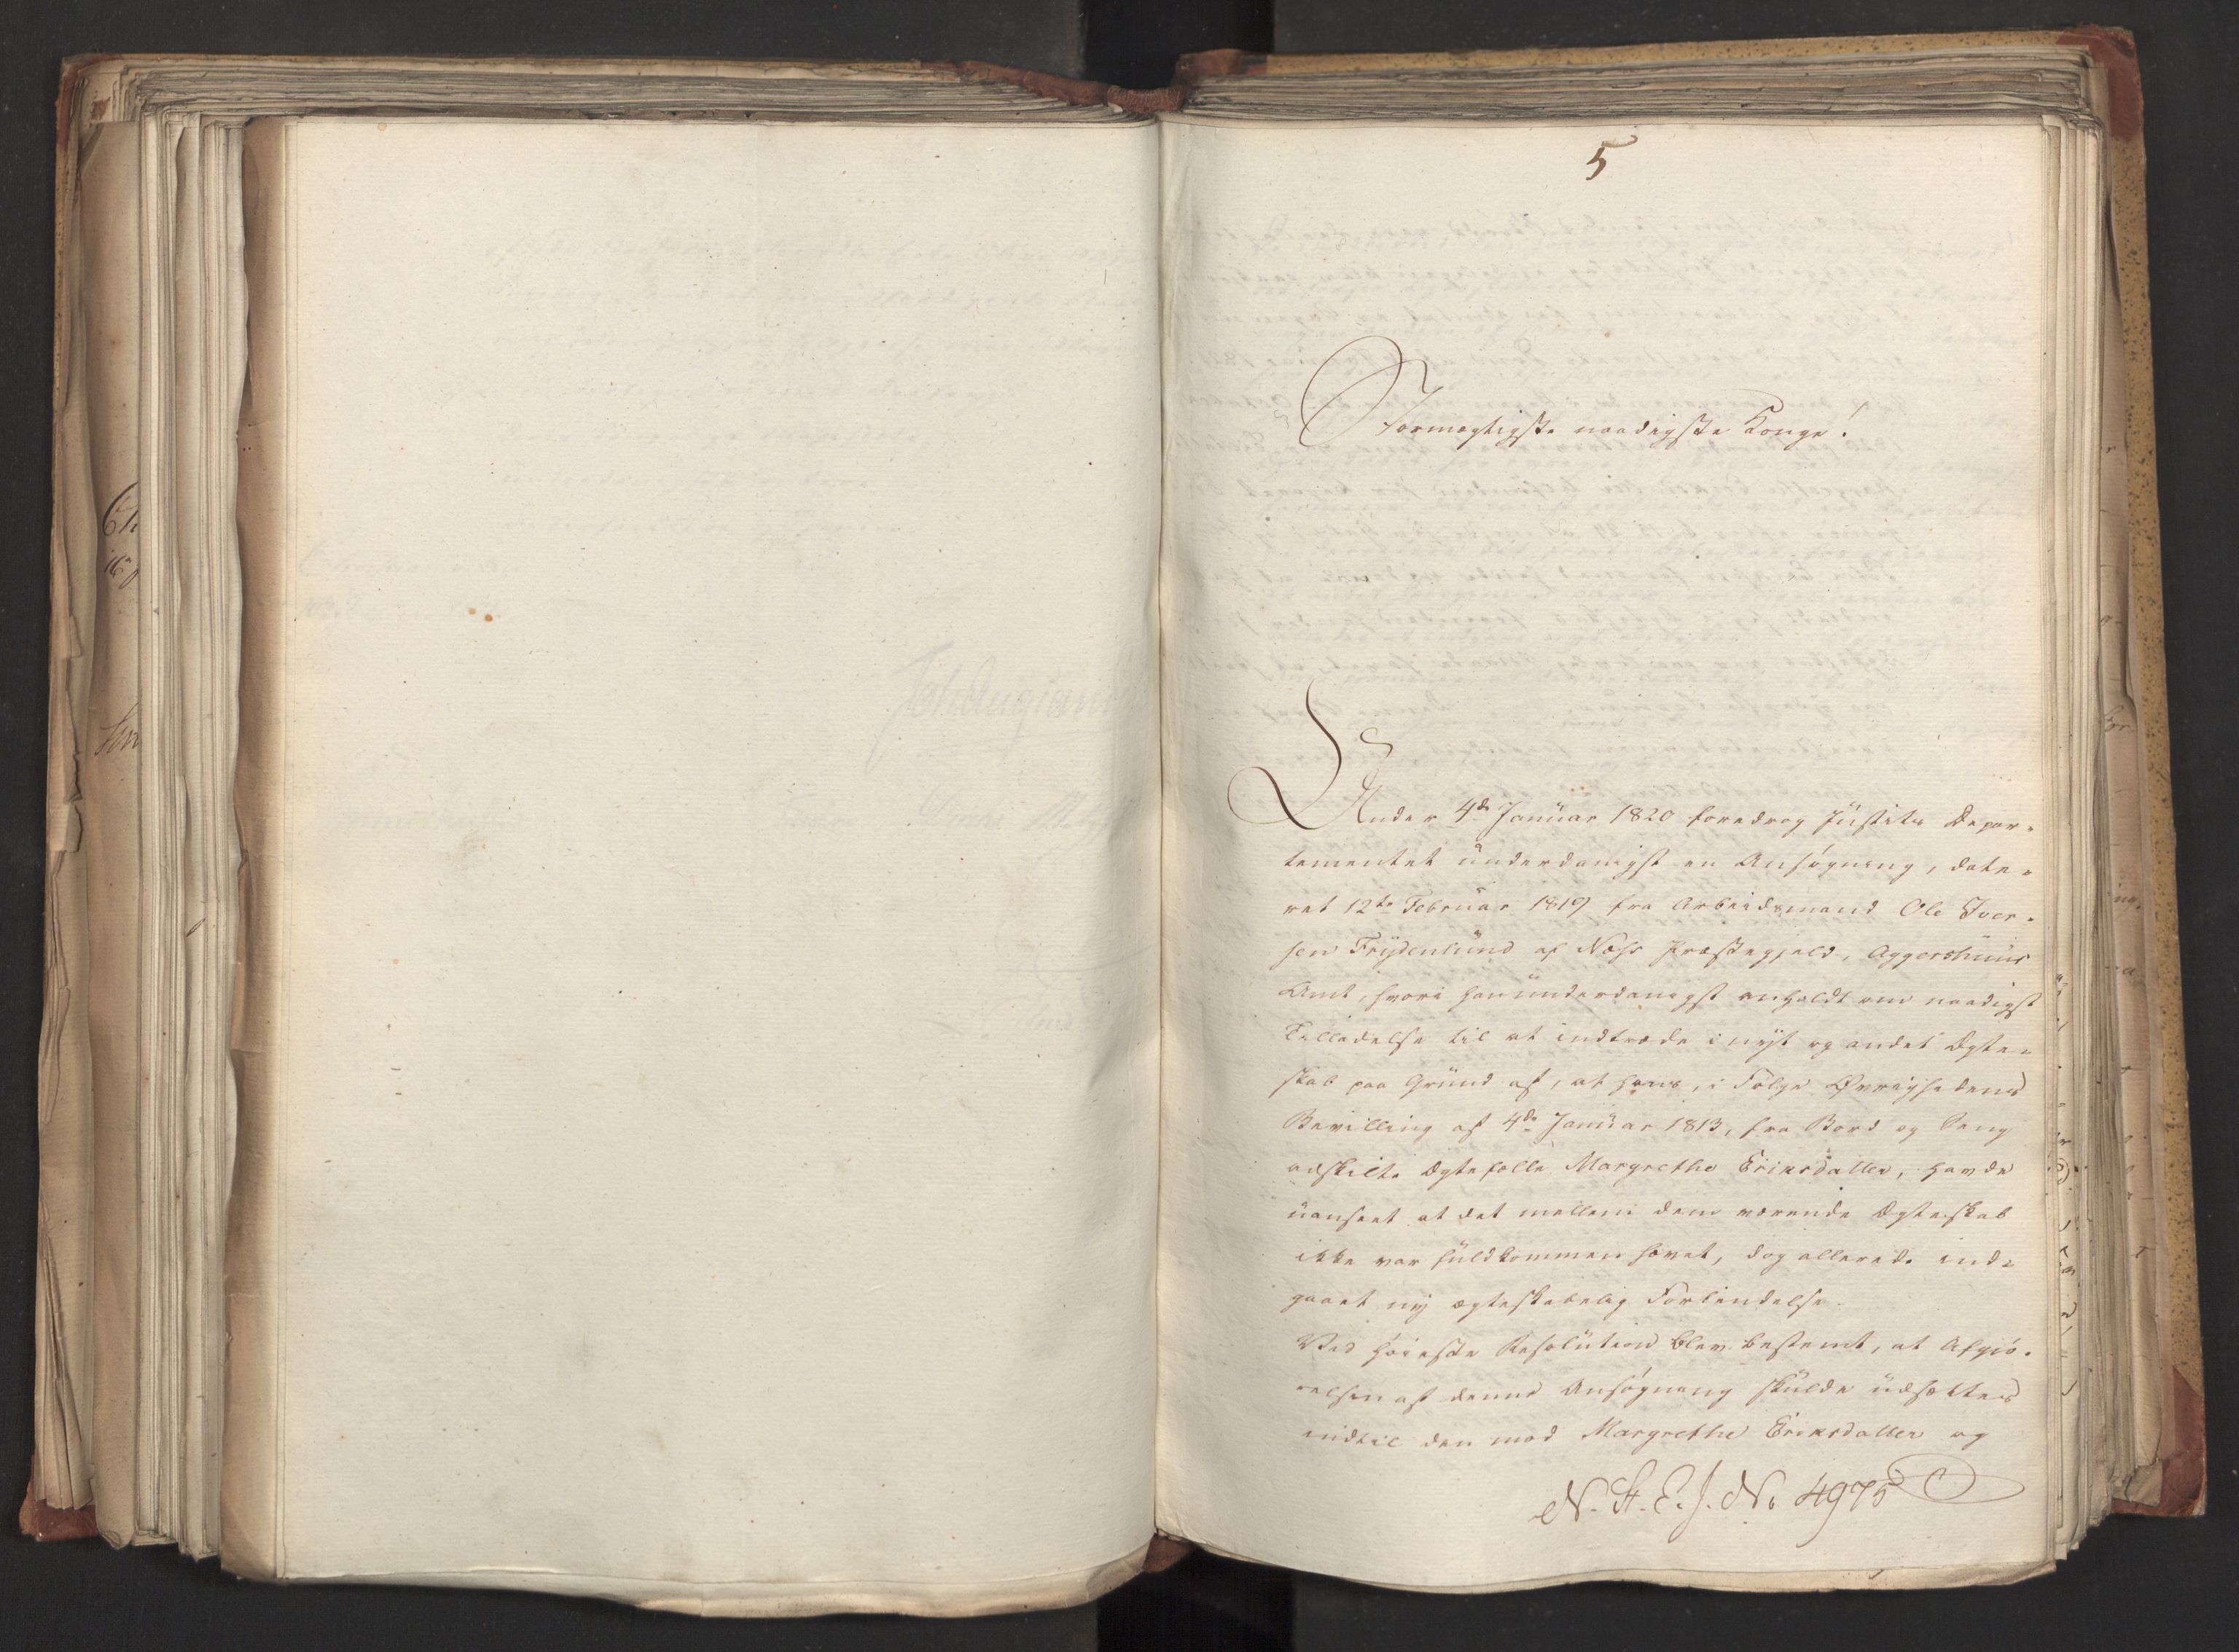 5
Stormægtigste naadigste Konge!
Under 4de Januar 1820 foredrog Justits Depar-
tementet underdanigst en Ansøgning, date-
ret 12te Februar 1819 fra Arbeidsmand Ole Iver-
sen Frydenlund af Næss Præstegjeld, Aggershuus
Amt, hvori han underdanigst anholdt om naadigst
Tilladelse til at indtræde i nyt og andet Ægte-
skab paa Grund af, at hans, i Følge Øvrighedens
Bevilling af 4de Januar 1813, fra Bord og Seng
adskilte Ægtefælle Margrethe Eriksdatter, havde
uanseet at det mellem dem værende Ægteskab
ikke var fuldkommen hævet, dog allerede ind-
gaaet ny ægteskabelig Forbindelse.
Ved høieste Resolution blev bestemt, at Afgjø-
relsen af denne Ansøgning skulde udsættes
indtil den mod Margrethe Eriksdatter og
N. St. E. J. No 4975